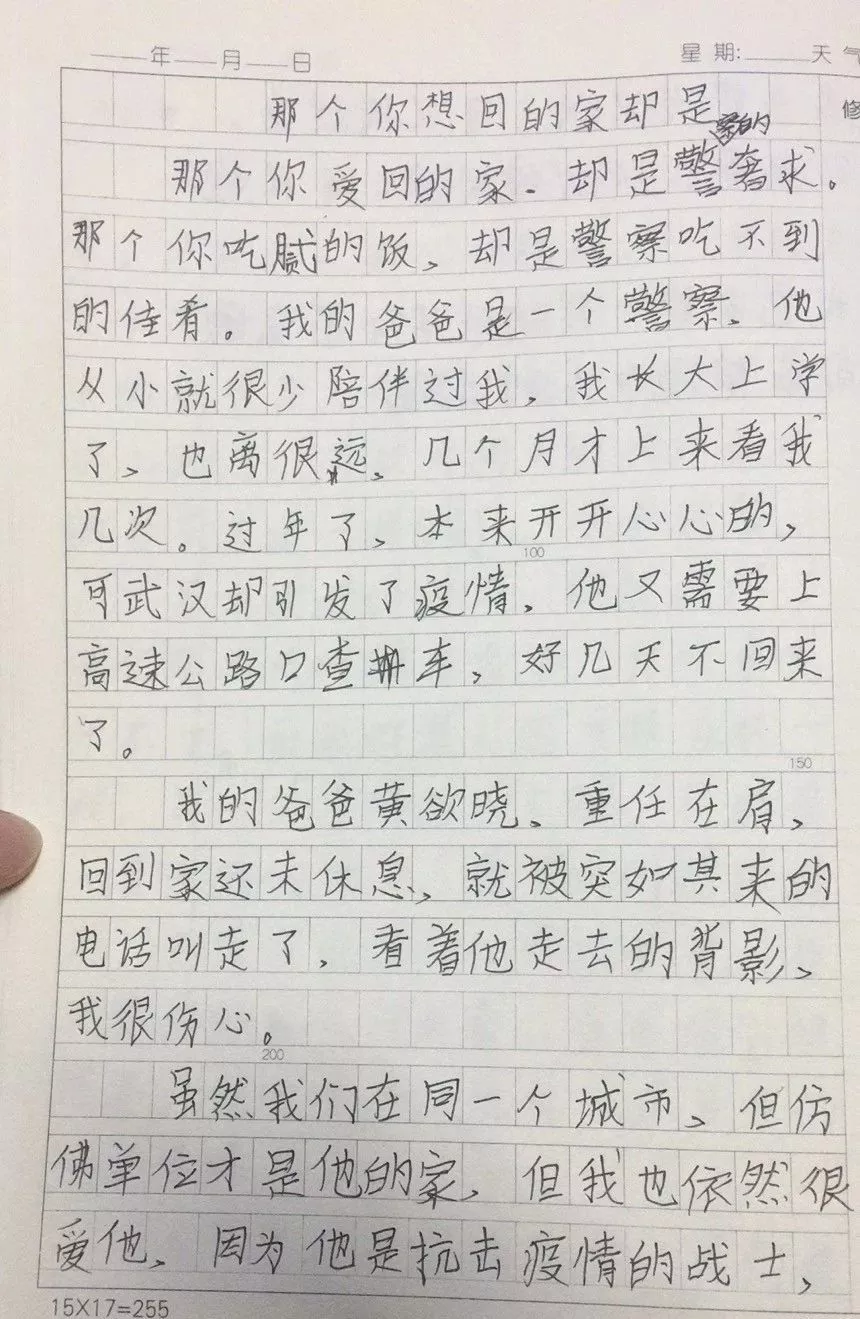 年 月 日 星期: 天气
那个你想回的家却是
修
察的
那个你爱回的家、却是警奢求。
那个你吃腻的饭、却是警察吃不到
的佳肴。我的爸爸是一个警察、他
从小就很少陪伴过我,我长大上学
了、也离很远、几个月才上来看我
几次。过年了、本来开开心心的,
100
可武汉却引发了疫情,他又需要上
高速公路口查车,好几天不回来
了。
150
我的爸爸黄欲晓、重任在肩,
回到家还未休息,就被突如其来的
电话叫走了,看着他走去的背影、
我很伤心。
200
虽然我们在同一个城市、但仿
佛单位才是他的家,但我也依然很
爱他、因为他是抗击疫情的战士,
15X17=255